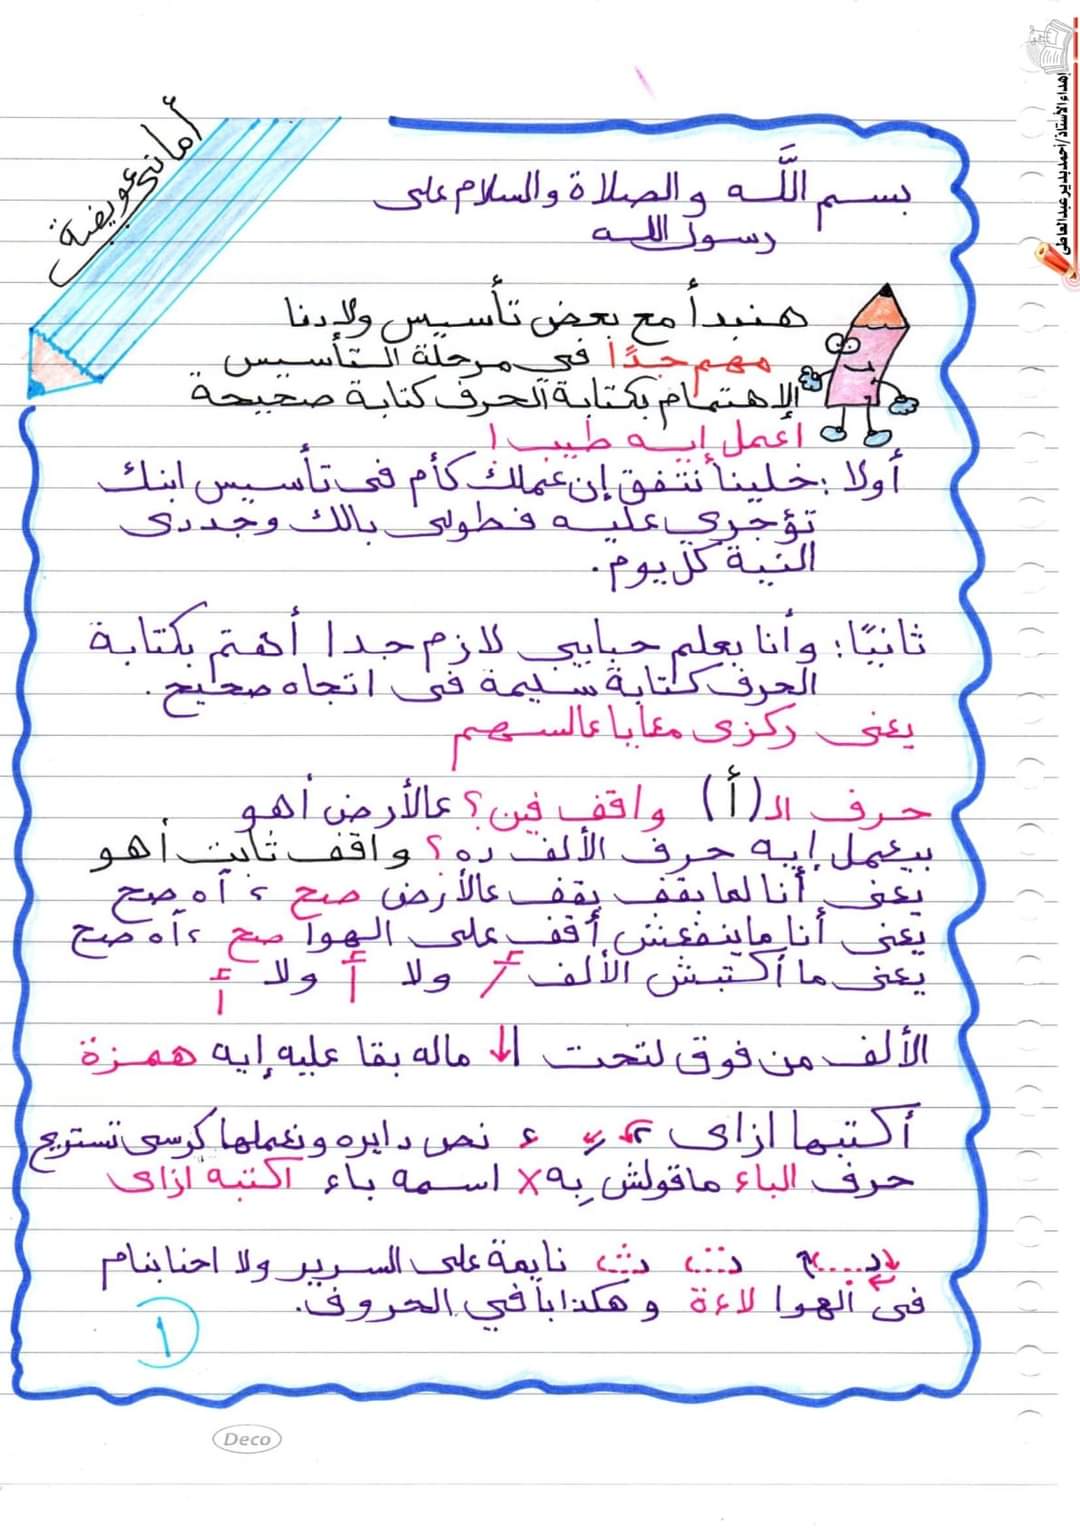 إهداء الأستاذ/أحمد بدير عبدالعاطى
أمانى عويضة
بسم اللَّه والصلاة والسلام على
رسول الله
هنبدأ مع بعض تأسيس ولادنا
مهم جدًا فى مرحلة التأسيس
الإهتمام بكتابة الحرف كتابة صحيحة
اعمل إيه طيب ا
أولا : خلينا نتفق إن عملك كأم فى تأسيس ابنك
تؤجري عليه فطولى بالك وجددى
النية كل يوم.
ثانيًا: وأنا بعلم حبايبي لازم جدا أهتم بكتابة
الحرف كتابة سليمة فى اتجاه صحيح.
يعنى ركزى معايا عالسهم
حرف الـ (أ) واقف فين؟ عالأرض أهو
بيعمل إيه حرف الألف ده؟ واقف ثابت أهو
يعنى أنا لما بقف بقف عالأرض صح ، آه صح
يعنى أنا ماينفعش أقف على الهوا صح ، آه صح
يعنى ما أكتبش الألف أ ولا أ ولا أ
الألف من فوق لتحت ا↓ ماله بقا عليه إيه همزة
أكتبها ازاى ء نص دايره ونعملها كرسى تستريح
حرف الباء ماقولش بِه x اسمه باء اكتبه ازاى
نايمة على السرير ولا احنا بنام
فى الهوا لاءة وهكذا باقي الحروف.
١
Deco